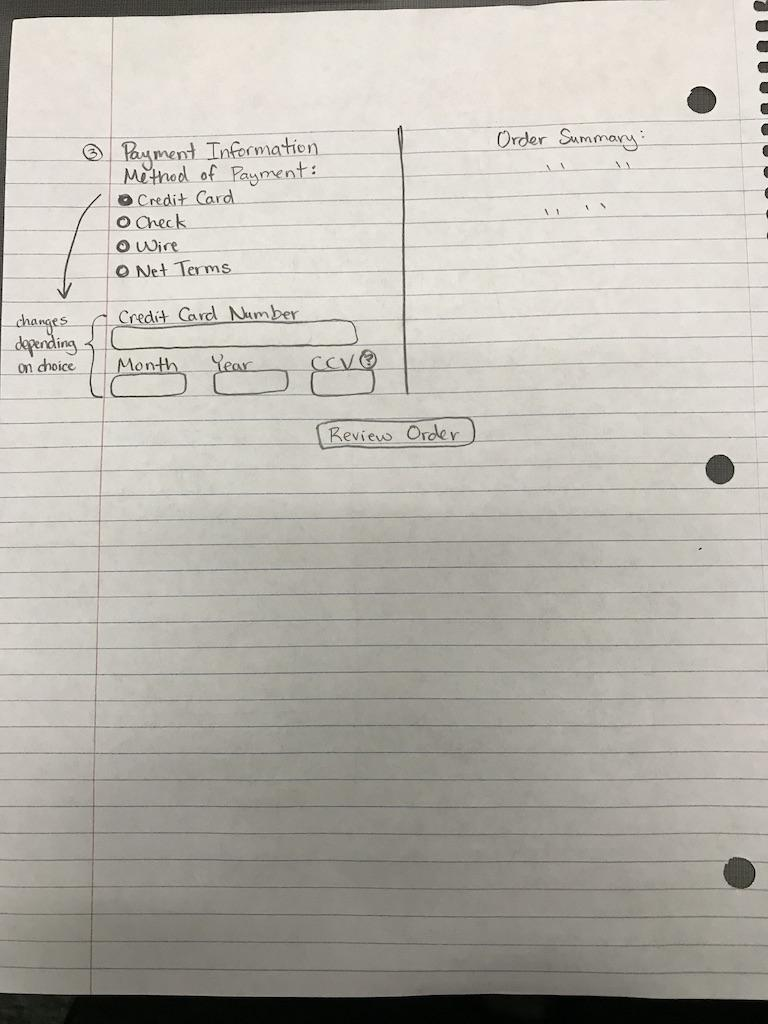 ③ Payment Information
Method of Payment:
Credit Card
Check
Wire
Net Terms
changes
depending
on choice
Credit Card Number
Month Year CCV ?
Order Summary:
" "
" "
Review Order